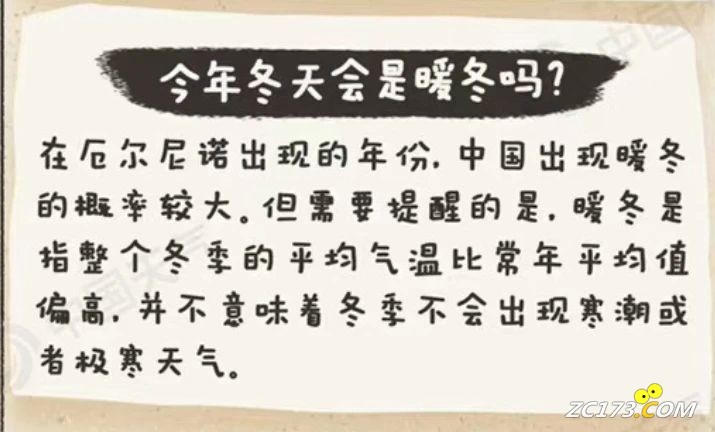 今年冬天会是暖冬吗?
在厄尔尼诺出现的年份,中国出现暖冬
的概率较大。但需要提醒的是,暖冬是
指整个冬季的平均气温比常年平均值
偏高,并不意味着冬季不会出现寒潮或
者极寒天气。
中国天气
ZC173.COM